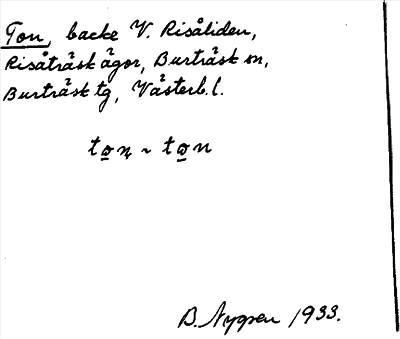 Ton, backe V. Risåliden,
Risåträsk ägor, Burträsk sn,
Burträsk tg, Västerb. l.
to̲n̥ ~ to̲n
B. Nygren 1933.